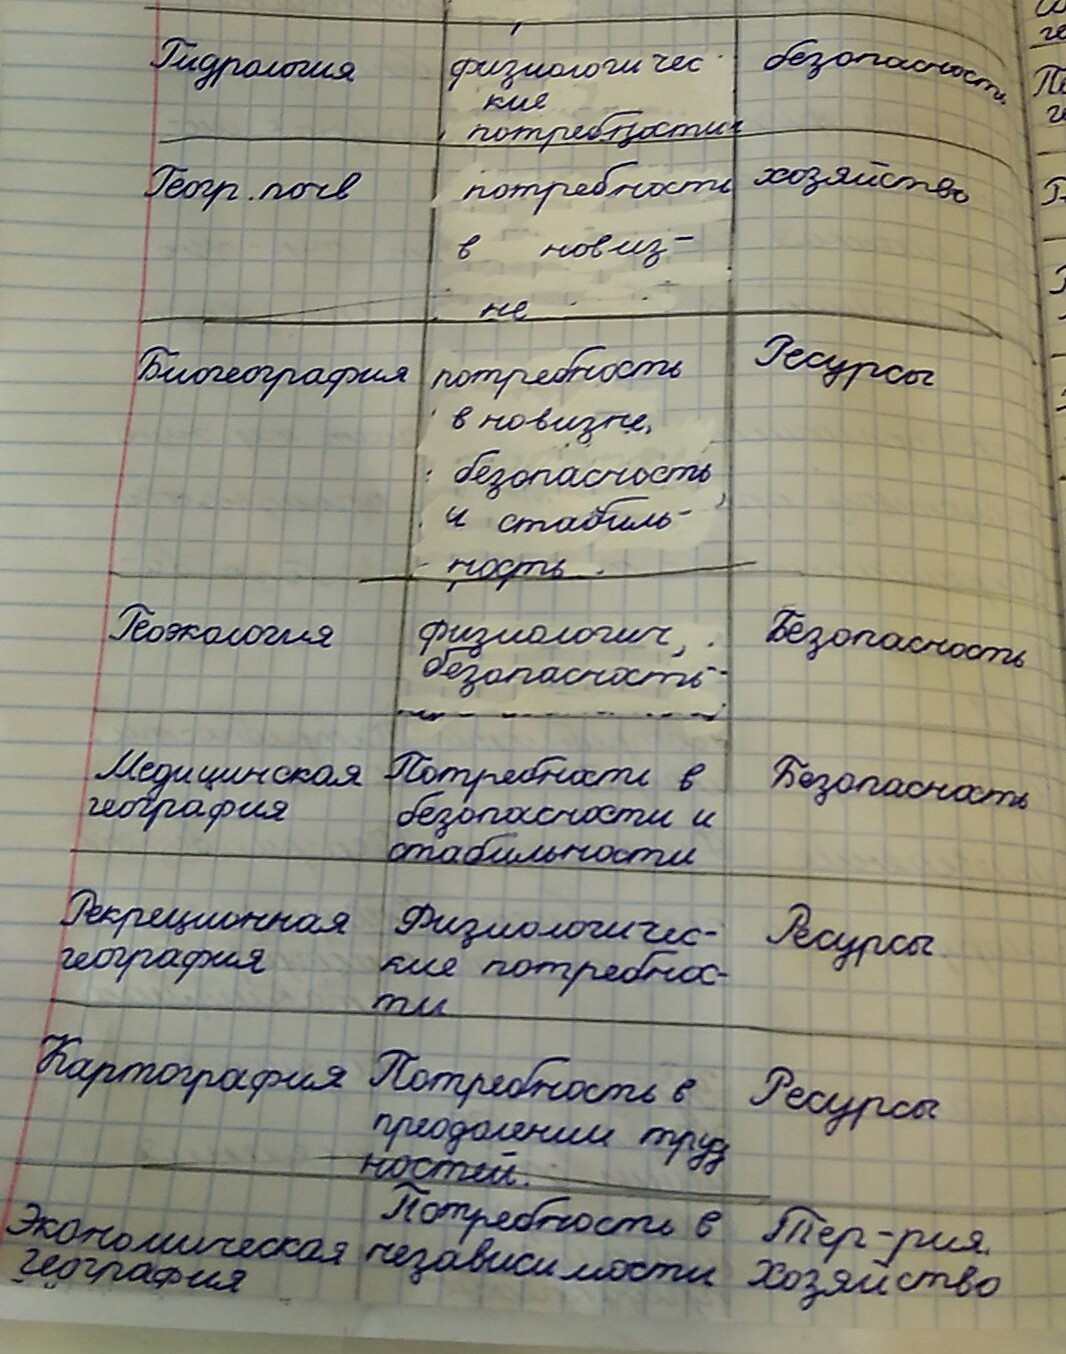 Гидрология физиологичес- безопасность
кие
потребности
Геогр. почв потребность хозяйство
в новиз-
не
Биогеография потребность Ресурсы
в новизне,
безопасность
и стабиль-
ность
Геоэкология физиологич, Безопасность
безопасность
Медицинская Потребности в Безопасность
география безопасности и
стабильности
Рекреционная Физиологичес- Ресурсы
география кие потребнос-
ти
Картография Потребность в Ресурсы
преодолении труд
ностей.
Экономическая Потребность в Тер-рия.
география независимости хозяйство